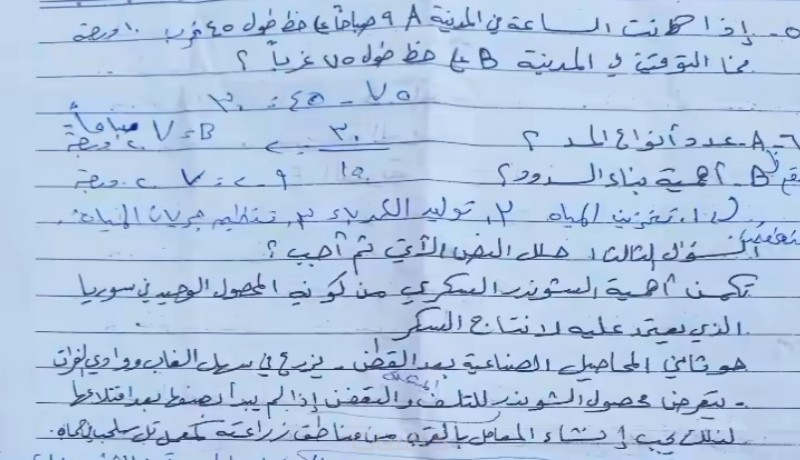 ٥- إذا كانت الساعة في المدينة A ٩ صباحاً على خط طول ٤٥ غرب. ١٠ درجة
فما التوقيت في المدينة B على خط طول ٧٥ غرباً ؟
٧٥ - ٤٥ = ٣٠
٦- A- عدد أنواع المد ؟ ٣٠ / ١٥ = ٢ B = ٧ صباحاً ٢٠ درجة
B- أهمية بناء السدود ؟ ٩ - ٢ = ٧ ٢٠ درجة
١. تخزين المياه ٢. توليد الكهرباء ٣. تنظيم جريان المياه.
السؤال الثالث: حلل النص الآتي ثم أجب ؟
تكمن أهمية الشوندر السكري من كونه المحصول الوحيد في سوريا
الذي يعتمد عليه لانتاج السكر
هو ثاني المحاصيل الصناعية بعد القطن - يزرع في سهل الغاب ووادي الفرات
- يتعرض محصول الشوندر للتلف والتعفن إذا لم يبدأ تصنيعه بعد اقتلاعها
لذلك يجب إنشاء المعامل بالقرب من مناطق زراعته كمعمل تل سلحب في حماه.